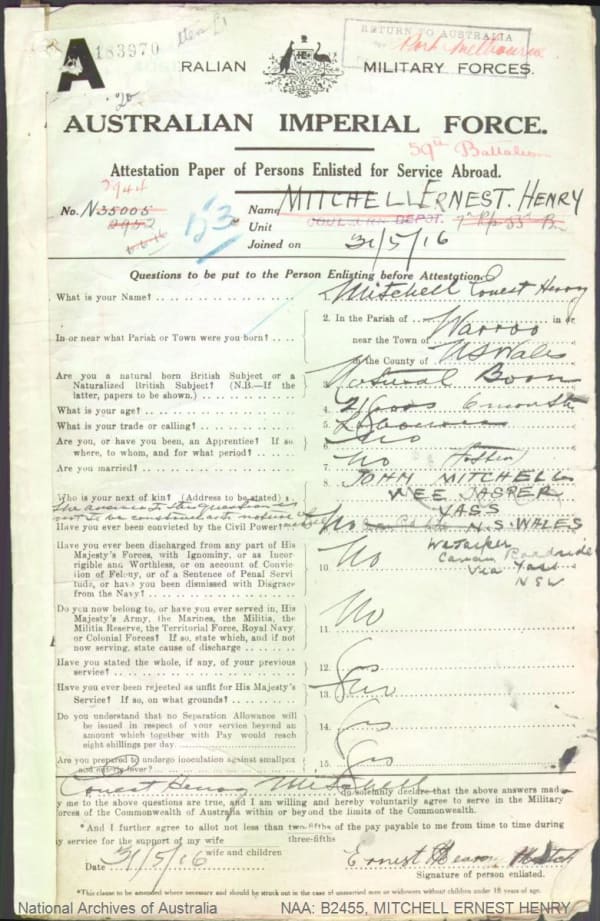 RETURN TO AUSTRALIA
Port Melbourne
183970
A
RALIAN MILITARY FORCES.
AUSTRALIAN IMPERIAL FORCE.
59th Battalion
Attestation Paper of Persons Enlisted for Service Abroad.
2944
No. N35005
Name MITCHELL ERNEST. HENRY
Unit GOULBURN DEPOT.
Joined on 31/5/16
Questions to be put to the Person Enlisting before Attestation.
What is your Name? Mitchell Ernest Henry
In or near what Parish or Town were you born?
2. In the Parish of in or
near the Town of Warroo
in the County of NSWales
Are you a natural born British Subject or a
Naturalized British Subject? (N.B.—If the
latter, papers to be shown.) Natural Born
What is your age? 4. 21 years 6 months
What is your trade or calling? 5. Labourer
Are you, or have you been, an Apprentice? If so
where, to whom, and for what period? 6. No
Are you married? 7. No
Father
Who is your next of kin? (Address to be stated)
8. JOHN MITCHELL
WEE JASPER
YASS
N.S. WALES
The answer to this question is
not to be construed as to
Have you ever been convicted by the Civil Power? No
Wee Jasper
Cavan Roadside
Via Yass
NSW
Have you ever been discharged from any part of His
Majesty's Forces, with Ignominy, or as Incor-
rigible and Worthless, or on account of Convic-
tion of Felony, or of a Sentence of Penal Servi-
tude, or have you been dismissed with Disgrace
from the Navy? 10. No
Do you now belong to, or have you ever served in, His
Majesty's Army, the Marines, the Militia, the
Militia Reserve, the Territorial Force, Royal Navy,
or Colonial Forces? If so, state which, and if not
now serving, state cause of discharge 11. No
Have you stated the whole, if any, of your previous
service? 12. Yes
Have you ever been rejected as unfit for His Majesty's
Service? If so, on what grounds? 13. No
Do you understand that no Separation Allowance will
be issued in respect of your service beyond an
amount which together with Pay would reach
eight shillings per day 14. Yes
Are you prepared to undergo inoculation against smallpox
and enteric fever? 15. Yes
Ernest Henry Mitchell do solemnly declare that the above answers made
y me to the above questions are true, and I am willing and hereby voluntarily agree to serve in the Military
orces of the Commonwealth of Australia within or beyond the limits of the Commonwealth.
*And I further agree to allot not less than two-fifths of the pay payable to me from time to time during
three-fifths
y service for the support of my wife
wife and children
Date 31/5/16
Ernest Henry Mitch
Signature of person enlisted.
*This clause to be amended where necessary and should be struck out in the case of unmarried men or widowers without children under 18 years of age.
National Archives of Australia NAA: B2455, MITCHELL ERNEST HENRY